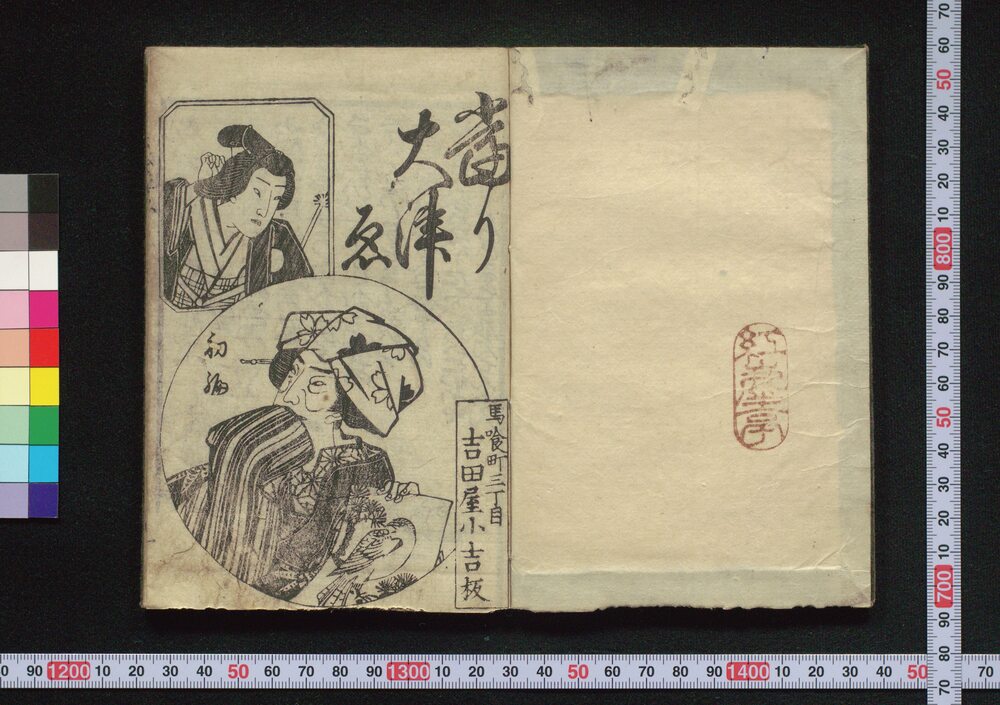 當り
大津
ゑ
初編
馬喰町三丁目
吉田屋小吉板
70 60 50 40 30 20 10 800 90 80 70 60 50 40 30 20 10 700 90 80 70
0 90 1200 10 20 30 40 50 60 70 80 90 1300 10 20 30 40 50 60 70 80 90 1400 10 20 30 40 50 70